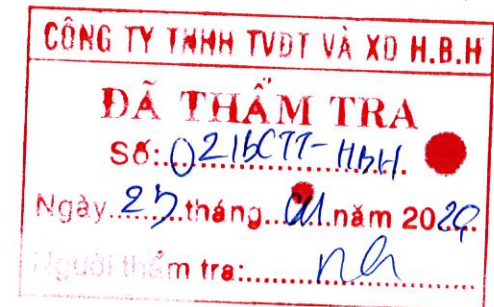 CÔNG TY TNHH TVĐT VÀ XD H.B.H
ĐÃ THẨM TRA
Số: 021BCTT-HBH
Ngày 25 tháng 01 năm 2024
Người thẩm tra: